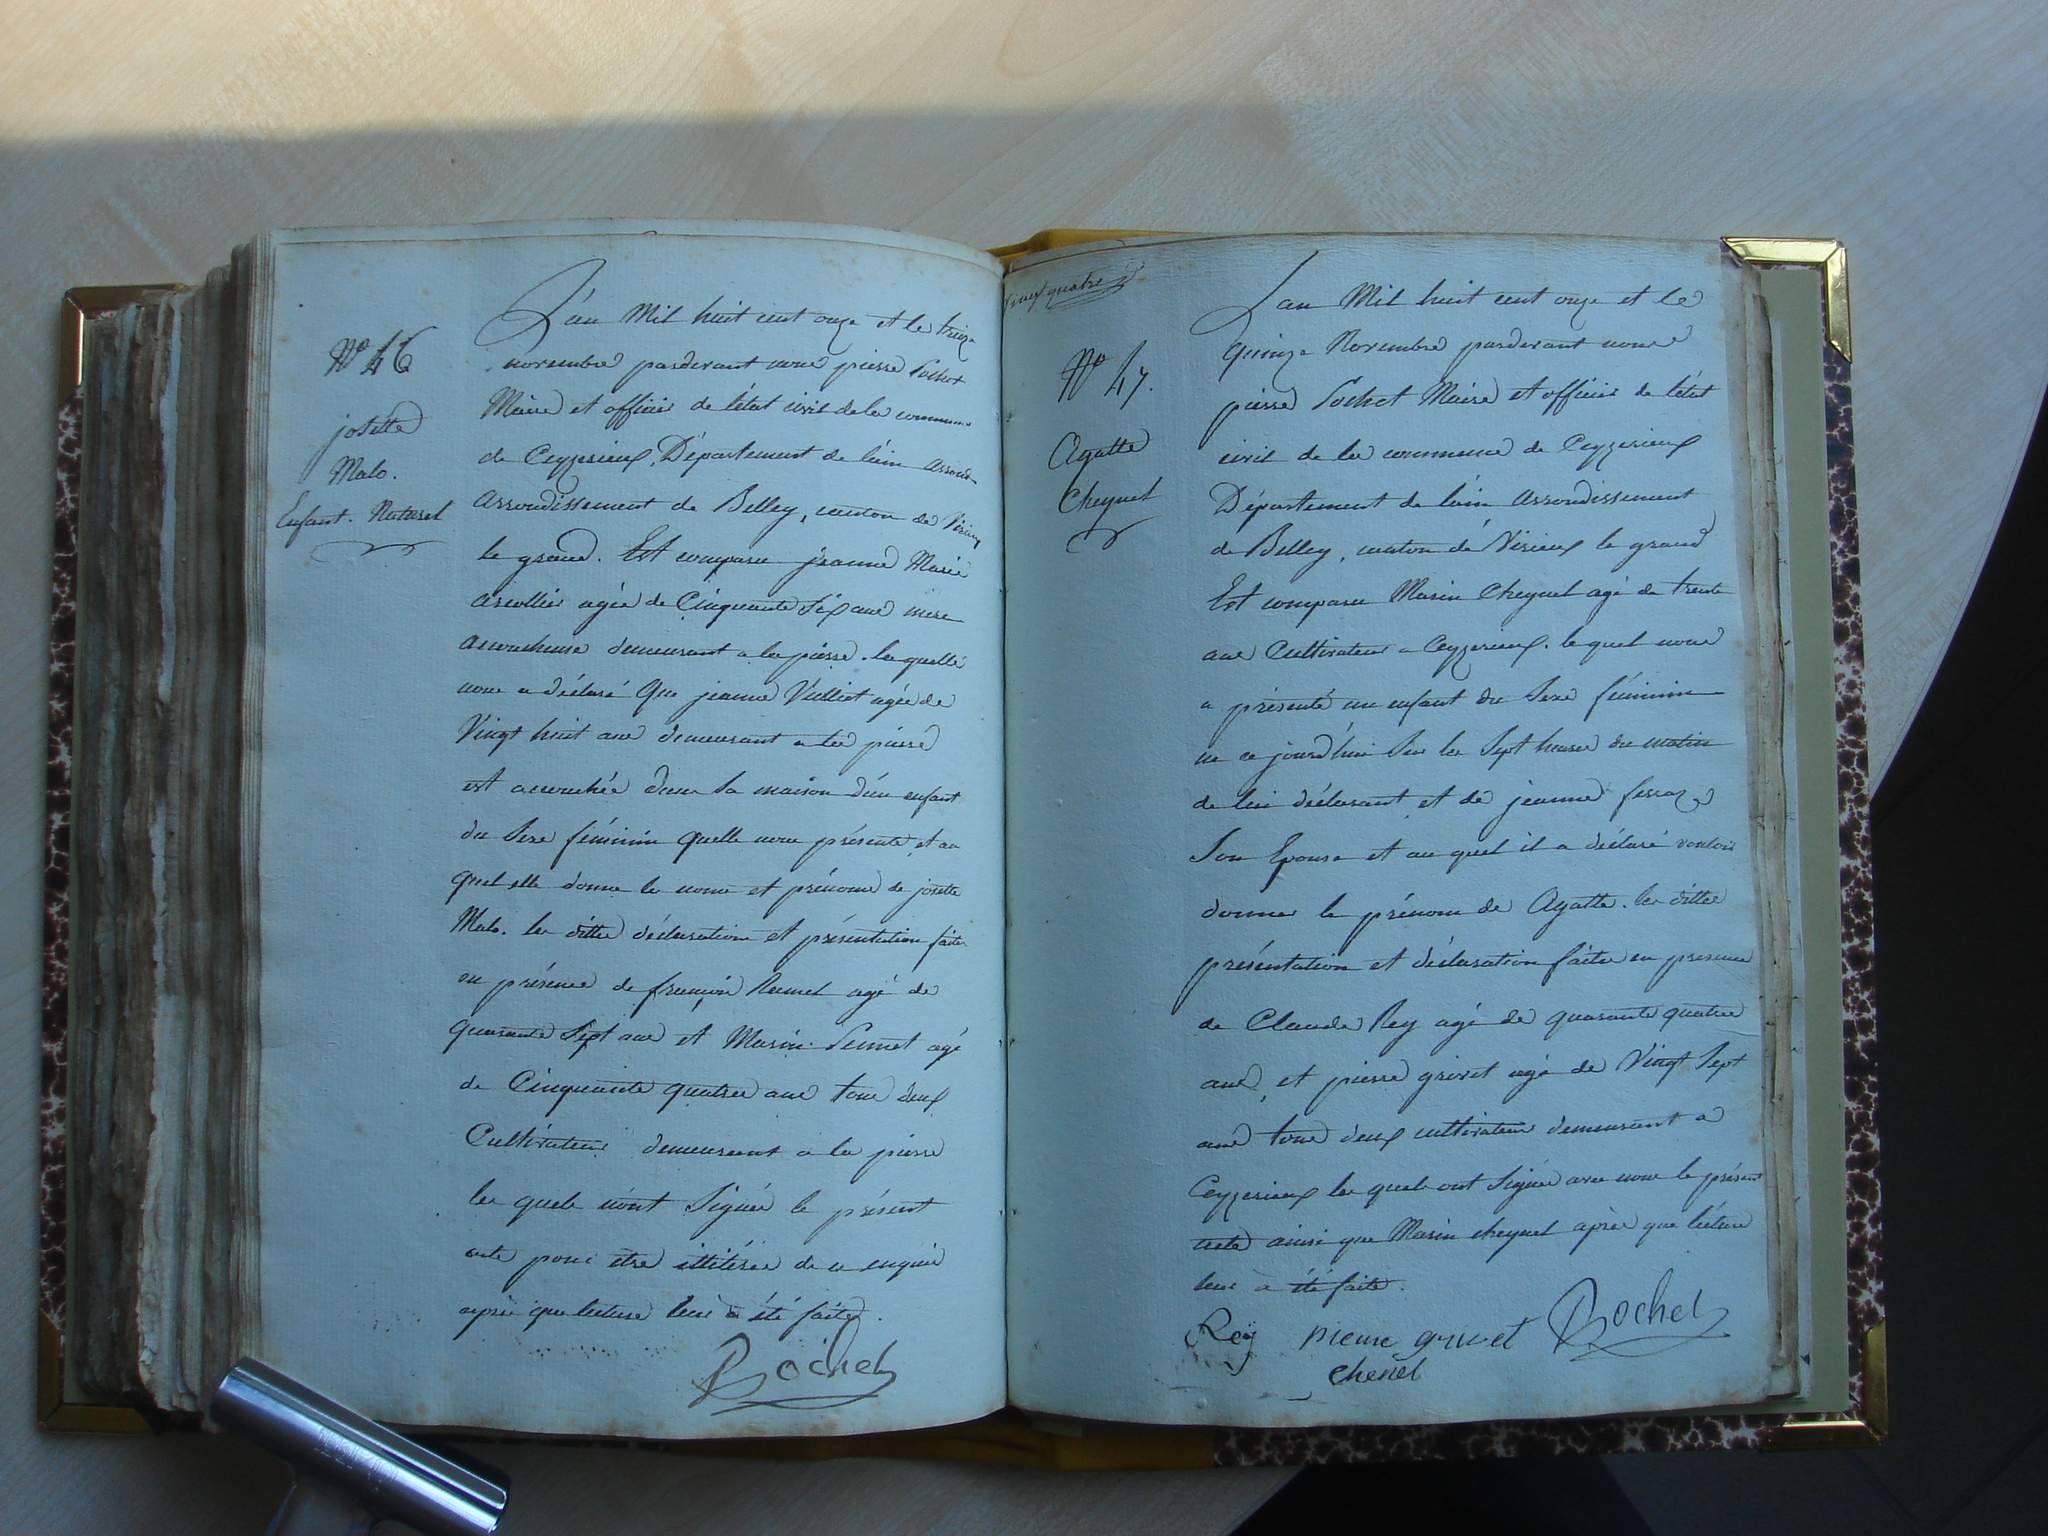 N° 46
josette
Malo.
Enfant. Naturel
L'an Mil huit cent onze et le treize
novembre pardevant nous pierre Pochet
Maire et officier de l'état civil de la commune
de Ceyzerieux, Département de l'ain arrond-
arrondissement de Belley, canton de Virieux
le grand. Est comparu jeanne Marie
agée de Cinquante Six ans mere
accoucheuse demeurant a la pierre. la quelle
nous a déclaré Que jeanne Vulliot agée de
Vingt huit ans demeurant a la pierre
est accouchée dans sa maison d'un enfant
du Sexe féminin quelle nous présente et au
quel elle donne le nom et prénoms de josette
Malo. la ditte déclaration et présentation faites
en présence de françois agé de
quarante Sept ans et Marin agé
de Cinquante quatre ans tous deux
Cultivateurs demeurant a la pierre
les quels n'ont Signés le présent
acte pour être illitérés de ce enquis
après que lecture leur a été faite.
Pochet
vingt quatre
N° 47.
Agatte
Cheynel
L'an Mil huit cent onze et le
Quinze Novembre pardevant nous
pierre Pochet Maire et officier de l'état
civil de la commune de Ceyzerieux
Département de l'ain arrondissement
de Belley, canton de Virieux le grand
Est comparu Marin Cheynel agé de trente
ans Cultivateur a Ceyzerieux. le quel nous
a présenté un enfant du Sexe féminin
né ce jourd'hui Sur les Sept heures du matin
de lui déclarant et de jeanne ferraz
Son Epouse et au quel il a déclaré vouloir
donner le prénom de Agatte. la ditte
présentation et déclaration faites en présence
de Claude Rey agé de quarante quatre
ans, et pierre grivet agé de Vingt Sept
ans tous deux cultivateurs demeurant a
Ceyzerieux les quels ont Signés avec nous le présent
acte ainsi que Marin cheynel après que lecture
leur à été faite.
Rey pierre grivet Pochet
chenel